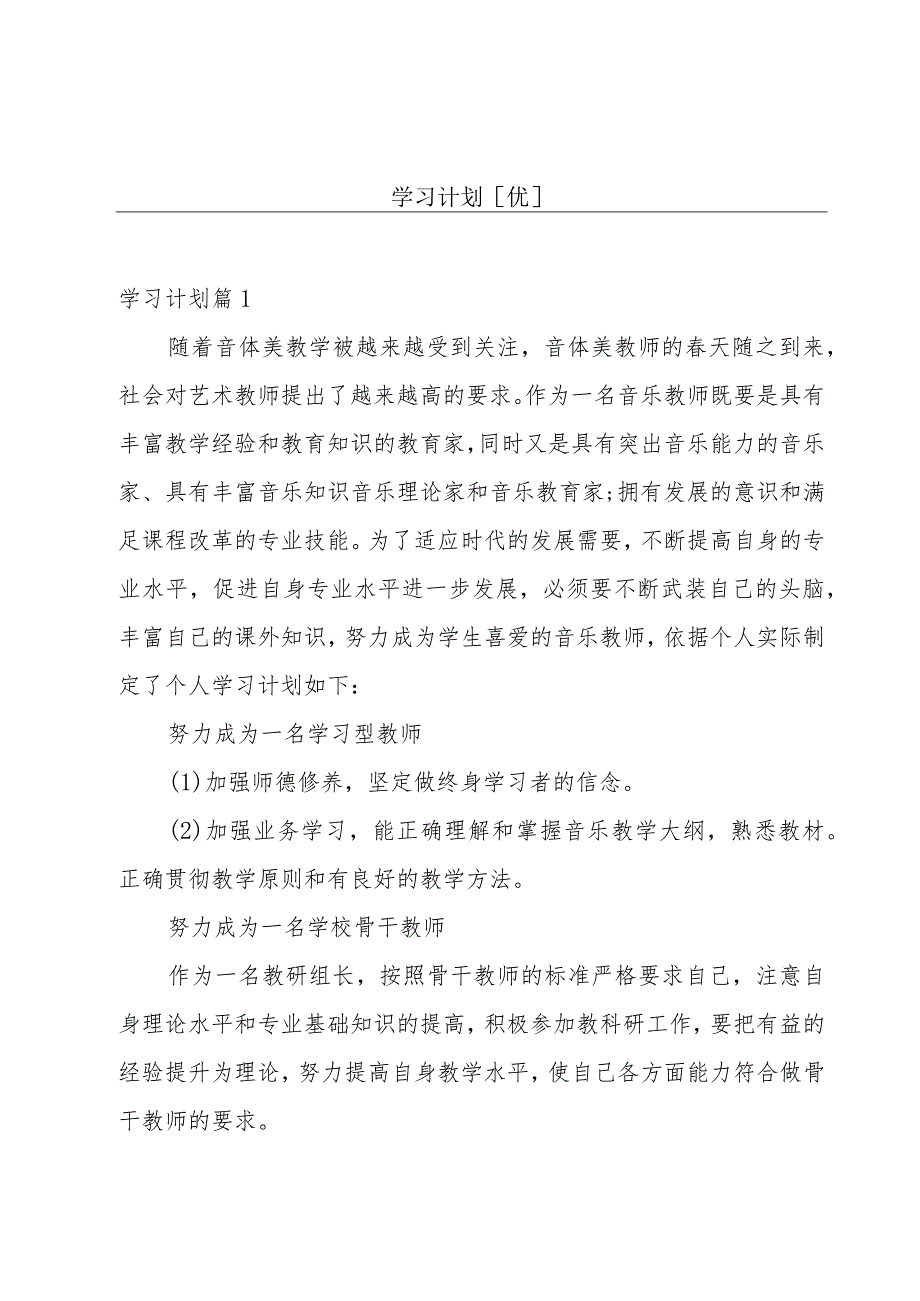 学习计划［优］
学习计划篇1
随着音体美教学被越来越受到关注，音体美教师的春天随之到来，
社会对艺术教师提出了越来越高的要求。作为一名音乐教师既要是具有
丰富教学经验和教育知识的教育家，同时又是具有突出音乐能力的音乐
家、具有丰富音乐知识音乐理论家和音乐教育家；拥有发展的意识和满
足课程改革的专业技能。为了适应时代的发展需要，不断提高自身的专
业水平，促进自身专业水平进一步发展，必须要不断武装自己的头脑，
丰富自己的课外知识，努力成为学生喜爱的音乐教师，依据个人实际制
定了个人学习计划如下：
努力成为一名学习型教师
(1)加强师德修养，坚定做终身学习者的信念。
(2)加强业务学习，能正确理解和掌握音乐教学大纲，熟悉教材。
正确贯彻教学原则和有良好的教学方法。
努力成为一名学校骨干教师
作为一名教研组长，按照骨干教师的标准严格要求自己，注意自
身理论水平和专业基础知识的提高，积极参加教科研工作，要把有益的
经验提升为理论，努力提高自身教学水平，使自己各方面能力符合做骨
干教师的要求。